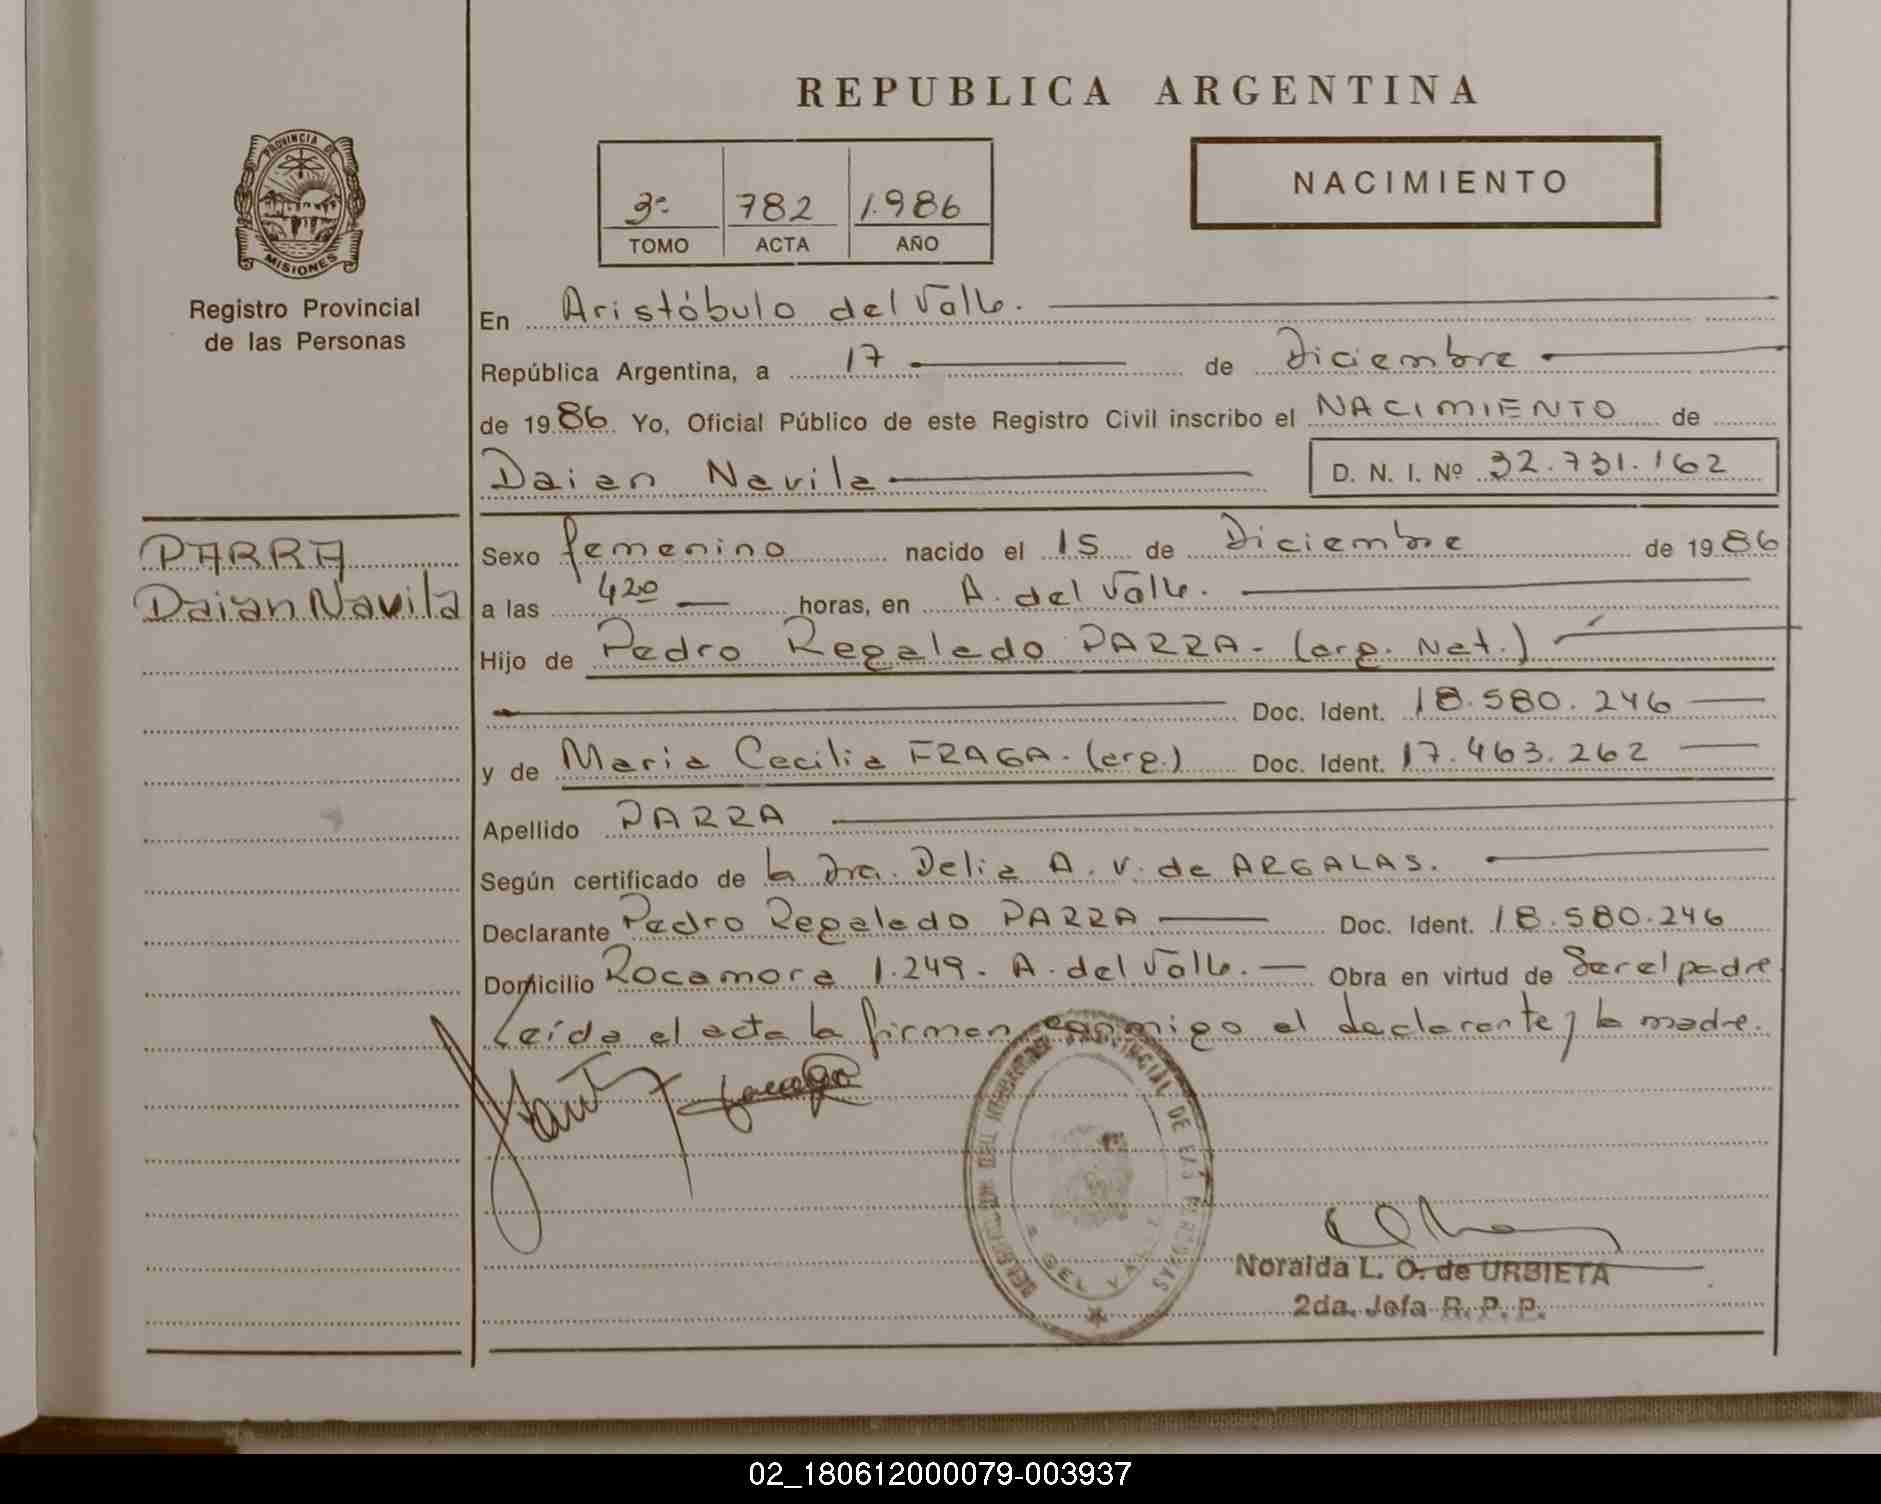 REPUBLICA ARGENTINA
PROVINCIA DE
MISIONES
Registro Provincial
de las Personas
3º 782 1.986
TOMO ACTA AÑO
NACIMIENTO
En Aristóbulo del Valle.
República Argentina, a 17 de Diciembre
de 1986 Yo, Oficial Público de este Registro Civil inscribo el NACIMIENTO de
Daian Navila D. N. I. Nº 32.731.162
PARRA
Daian Navila
Sexo femenino nacido el 15 de Diciembre de 1986
a las 4 20 horas, en A. del Valle.
Hijo de Pedro Regalado PARRA - (arg. Nat.)
Doc. Ident. 18.580.246
y de Maria Cecilia FRAGA - (arg.) Doc. Ident. 17.463.262
Apellido PARRA
Según certificado de la Dra. Delia A. V. de ARGALAS.
Declarante Pedro Regalado PARRA Doc. Ident. 18.580.246
Domicilio Rocamora 1.249 - A. del Valle. Obra en virtud de Ser el padre
Leída el acta la firman conmigo el declarante y la madre.
PROVINCIAL DE LAS PERSONAS
DEL VALLE
Noralda L. O. de URBIETA
2da. Jefa R. P. P.
02_180612000079-003937